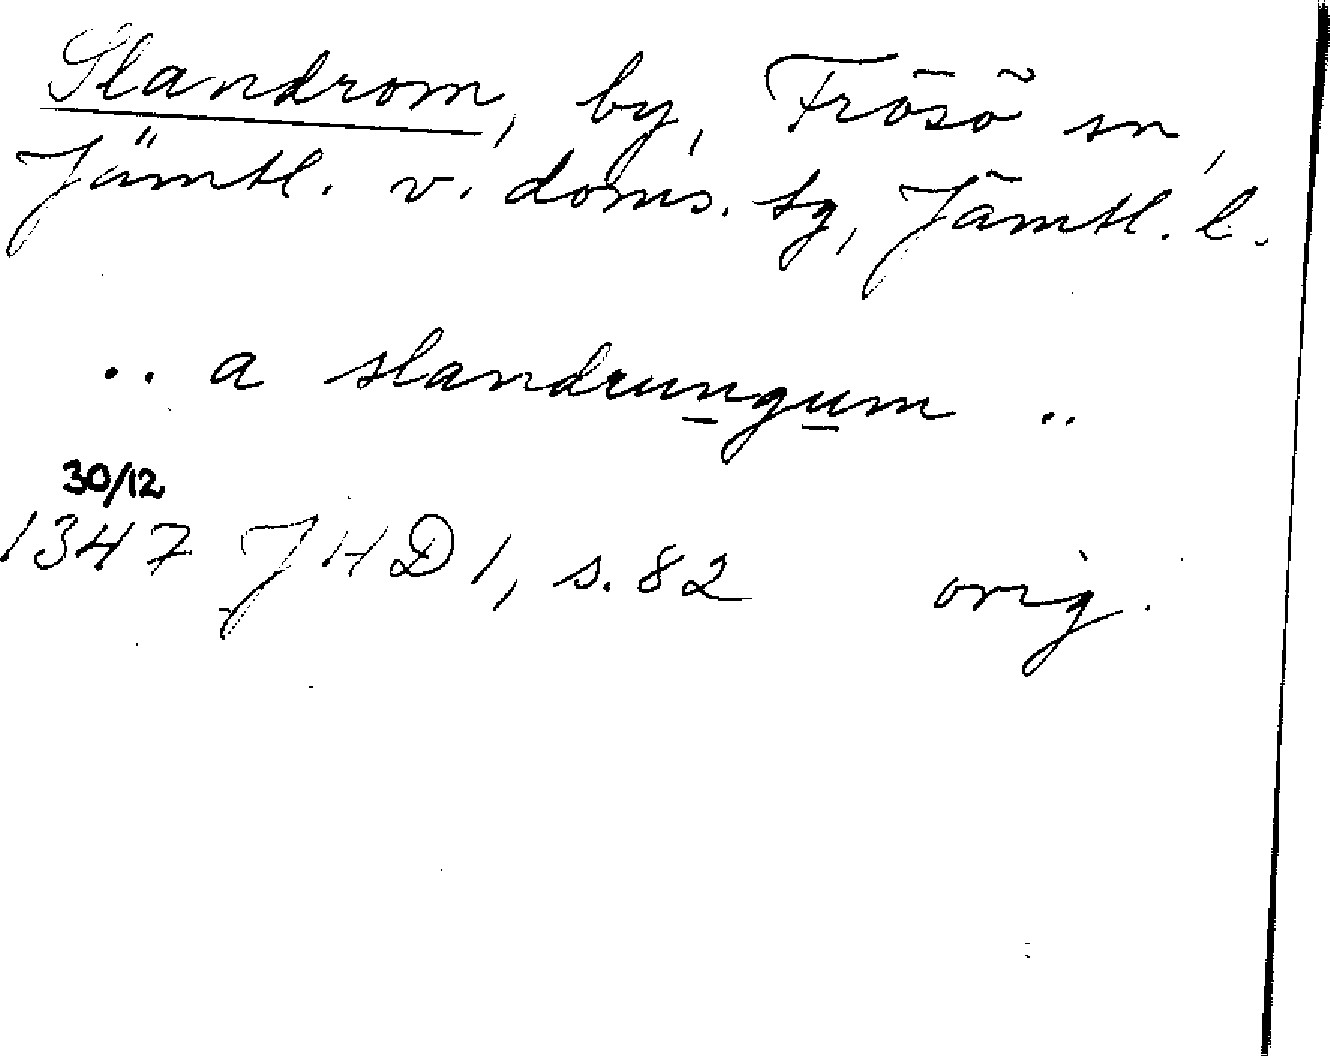 Slandrom, by, Frösö sn,
Jämtl. v. doms. tg, Jämtl. l.
.. a slandrungum ..
30/12
1347 JHD 1, s. 82 orig.